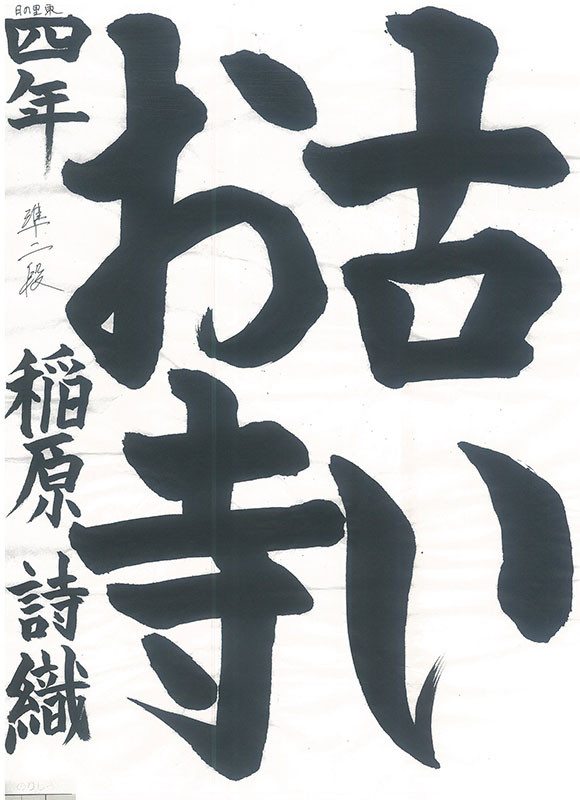 古い
お寺
日の里東
四年 準二段 稲原 詩織